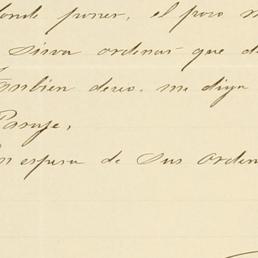 donde poner, el poco
Sirva ordenar que
Tambien deceo me diga
Paraje,
En espera de sus orden